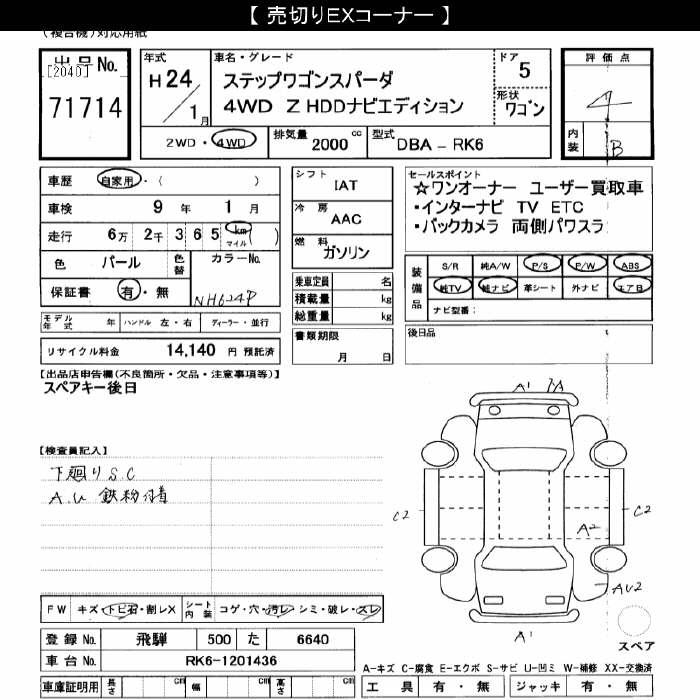 【 売切りEXコーナー 】
(複合機)対応用紙
出品No.
[2040]
71714
年式
H24/1月
車名・グレード
ステップワゴンスパーダ
4WD Z HDDナビエディション
ドア
5
形状
ワゴン
2WD・4WD
排気量 2000 cc
型式 DBA－RK6
評価点
4
内装 B
車歴 自家用・( )
車検 9年 1月
走行 6万 2千 3 6 5 km マイル ( )
色 パール 色替 カラーNo.
保証書 有・無 NH624P
モデル年式 年 ハンドル 左・右 ディーラー・並行
リサイクル料金 14,140 円 預託済
シフト
IAT
冷房
AAC
燃料
ガソリン
乗車定員 名
積載量 kg
総重量 kg
書類期限
月 日
セールスポイント
☆ワンオーナー ユーザー買取車
・インターナビ TV ETC
・バックカメラ 両側パワスラ
装備品
S/R 純A/W P/S P/W ABS
純TV 純ナビ 革シート 外ナビ エアB
ナビ型番：
後日品
【出品店申告欄(不良箇所・欠品・注意事項等)】
スペアキー後日
【検査員記入】
下廻りS.C
A.U 鉄粉付着
A1
C2
C2
A2
AU2
A1
スペア
FW キズ・トビ石・割レX シート内装 コゲ・穴・汚レ・シミ・破レ・スレ
登録No. 飛騨 500 た 6640
車台No. RK6-1201436
車庫証明用 長さ cm 幅 cm 高さ cm
A-キズ C-腐食 E-エクボ S-サビ U-凹ミ W-補修 XX-交換済
工具 有・無 ジャッキ 有・無